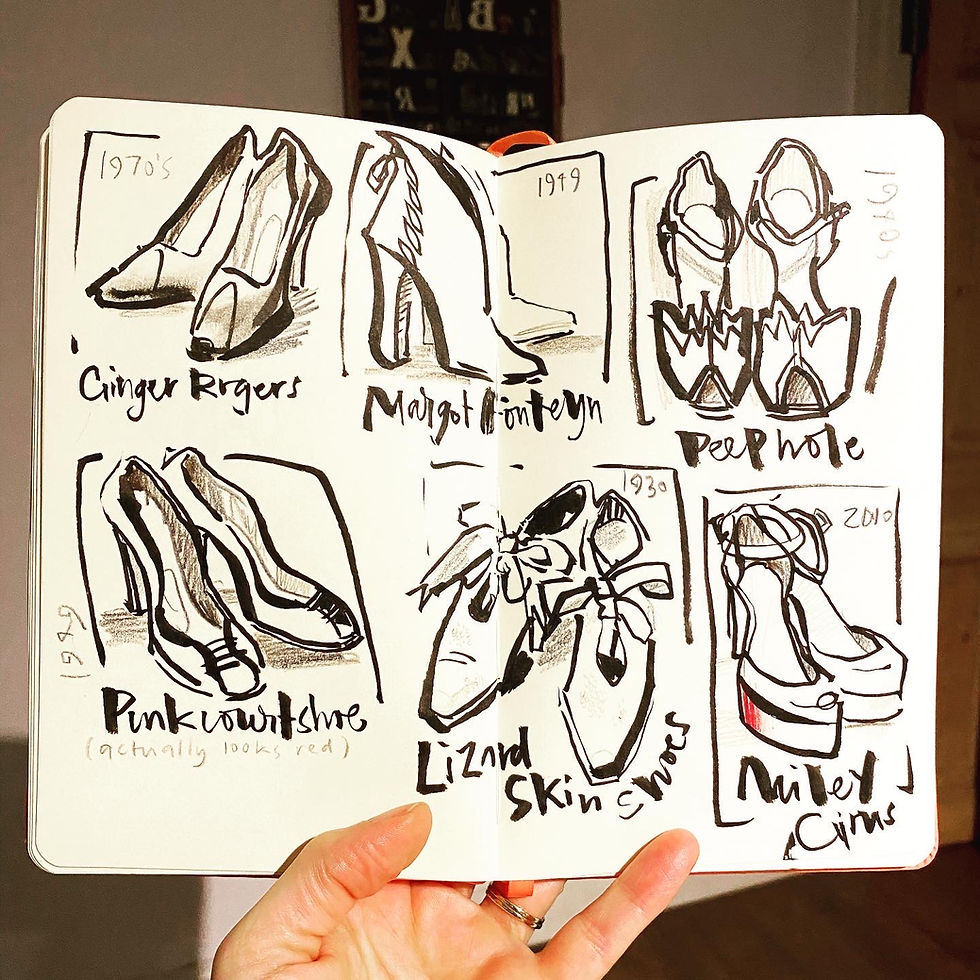 1970's
Ginger Rogers
1949
Margot Fonteyn
Peephole
Pink courtshoe
(actually looks red)
1930
Lizard
Skin shoes
2010
Miley
Cyrus